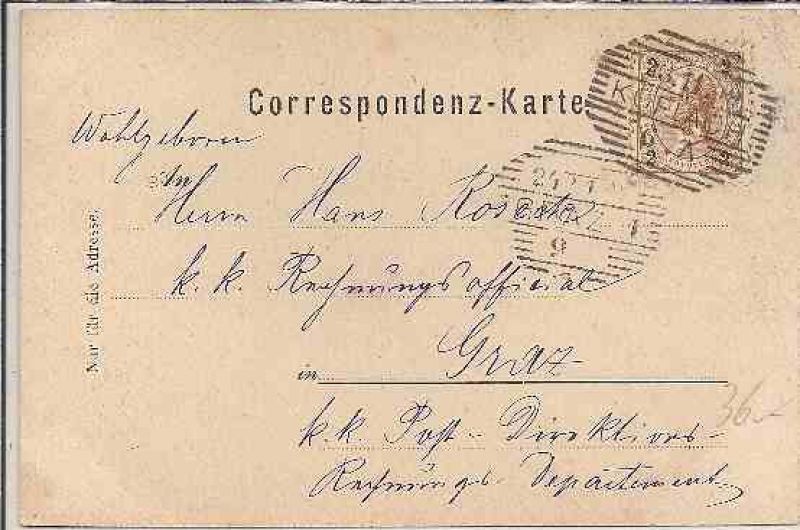 Correspondenz-Karte
Wohlgeboren
An
Herrn Hans
k. k. Rechnungsofficial
in Graz
k. k. Post- Direktions-
Rechnungs- Departement
Nur für die Adresse.
2 2
2 2
GRAZ 1
9
36.-